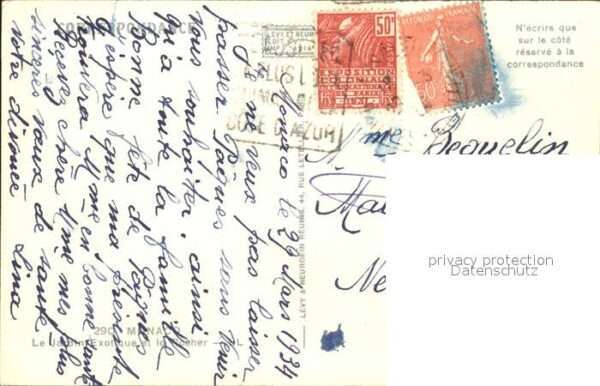 CORRESPONDANCE
N'écrire que
sur le côté
réservé à la
correspondance
50c
EXPOSITION
COLONIALE
INTERNATIONALE
PARIS
1931
50
CÔTE D'AZUR
Monaco le 29 Mars 1934
Je ne veux pas laisser
passer Pâques sans venir
vous souhaiter, ainsi
qu'à toute la famille
Bonne fête de Pâques
J'espère que ma présente
trouvera Mme en bonne santé
Recevez chère Mme mes plus
sincères vœux de santé
votre dévouée
Lina
Mme Dequelin
LEVY & NEURDEIN REUNIS, 44, RUE LETELLIER
290 MONACO
Le Jardin Exotique et le Rocher - LL
privacy protection
Datenschutz